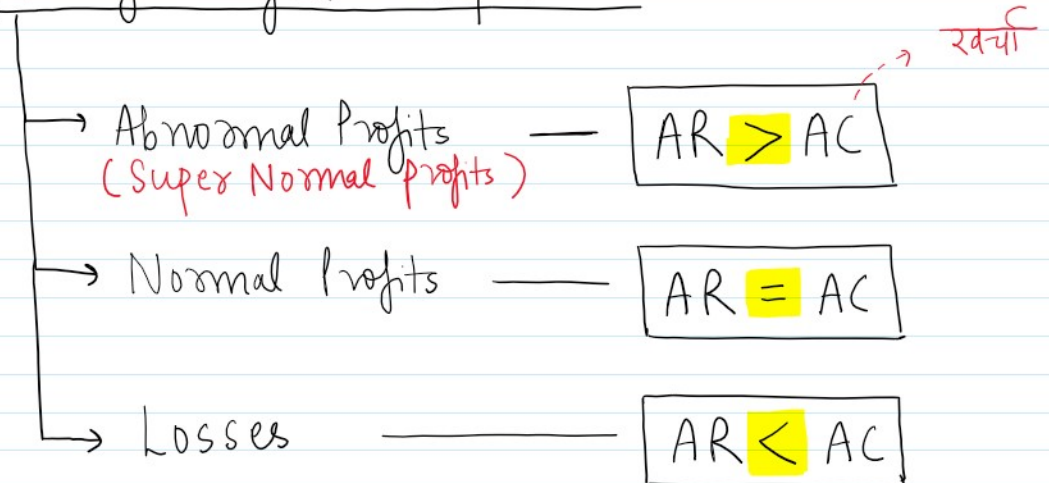 खर्चा
Abnormal Profits — AR > AC
(Super Normal profits)
Normal Profits — AR = AC
Losses — AR < AC